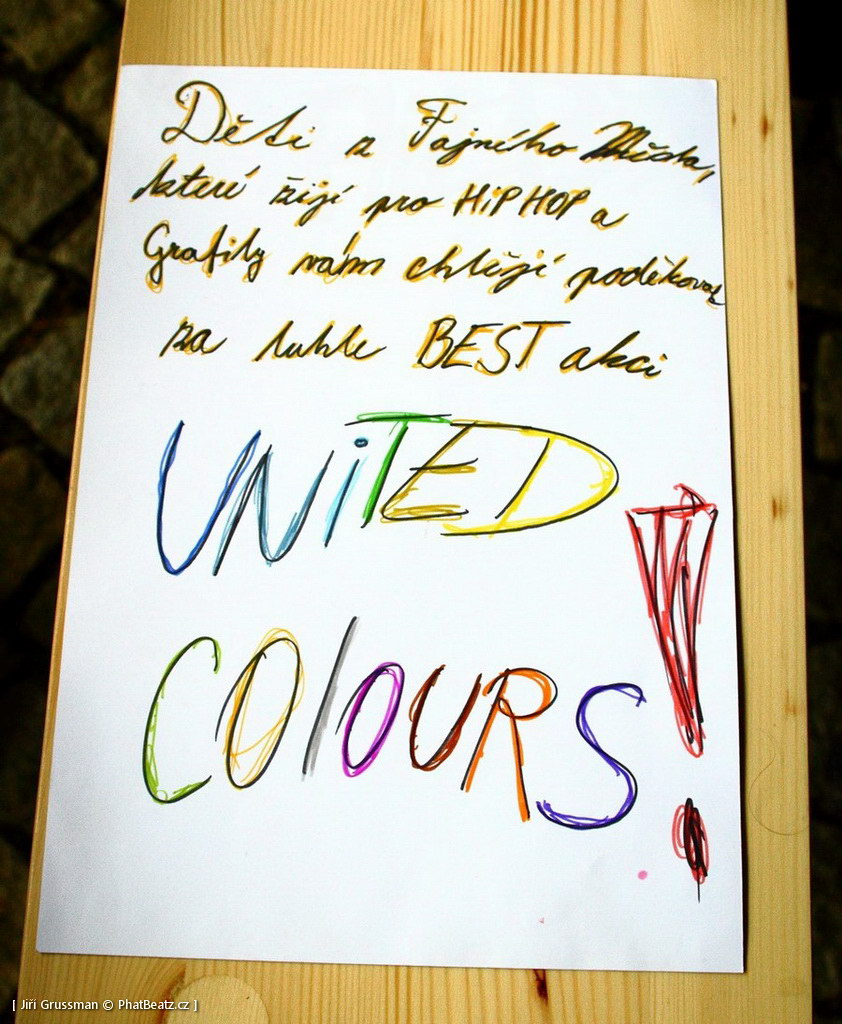 Děti z Fajného Města,
které žijí pro HiPHOP a
Grafity vám chtějí poděkovat
za tuhle BEST akci
UNiTED
COlOURS!
[ Jiří Grussman © PhatBeatz.cz ]